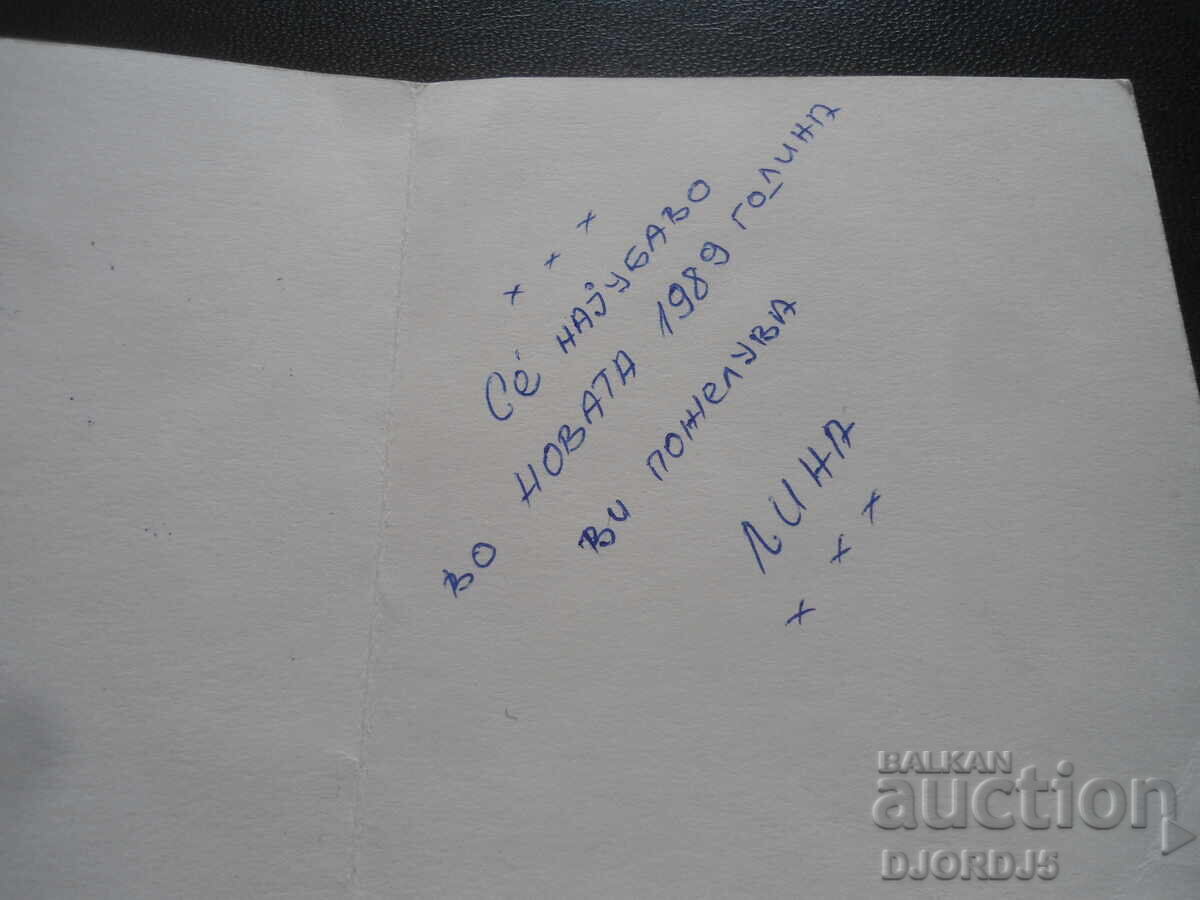 + + +
Сѐ најубаво
во новата 1989 година
ви пожелува
Лина
+ + +
BALKAN
auction
DJORDJ5